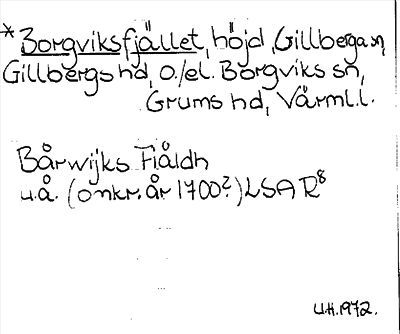 *Borgviksfjället, höjd, Gillberga sn,
Gillbergs hd, o./el. Borgviks sn,
Grums hd, Värml.l.
Bårwijks Fiåldh
u.å. (omkr. år 1700?) LSA R8
U.H. 1972.